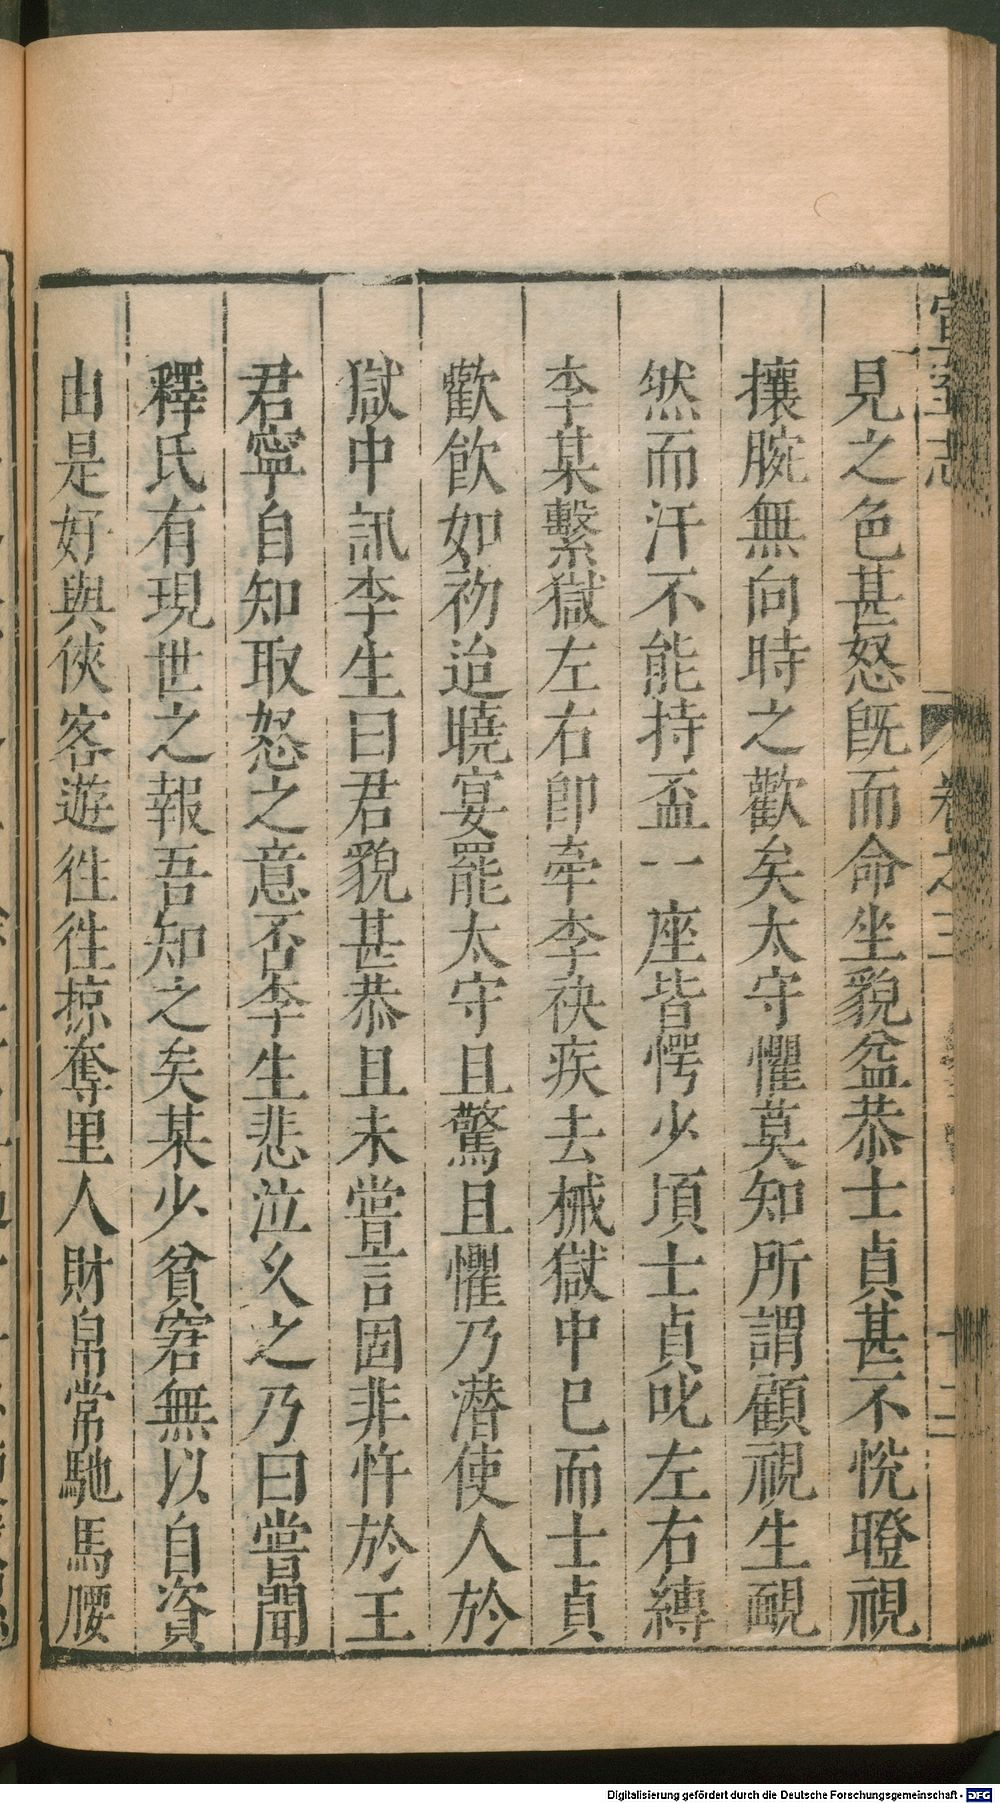 宣室志 卷之三 十二
見之色甚怒旣而命坐貌益恭士貞甚不悅瞪視
攘腕無向時之歡矣太守懼莫知所謂顧視生靦
然而汗不能持盃一座皆愕少頃士貞叱左右縛
李某繫獄左右卽牽李袂疾去械獄中已而士貞
歡飲如初迨曉宴罷太守且驚且懼乃潜使人於
獄中訊李生曰君貌甚恭且未嘗言固非忤於王
君寧自知取怒之意否李生悲泣久之乃曰嘗聞
釋氏有現世之報吾知之矣某少貧窘無以自資
由是好與俠客遊徃徃掠奪里人財帛常馳馬腰
Digitalisierung gefördert durch die Deutsche Forschungsgemeinschaft - DFG